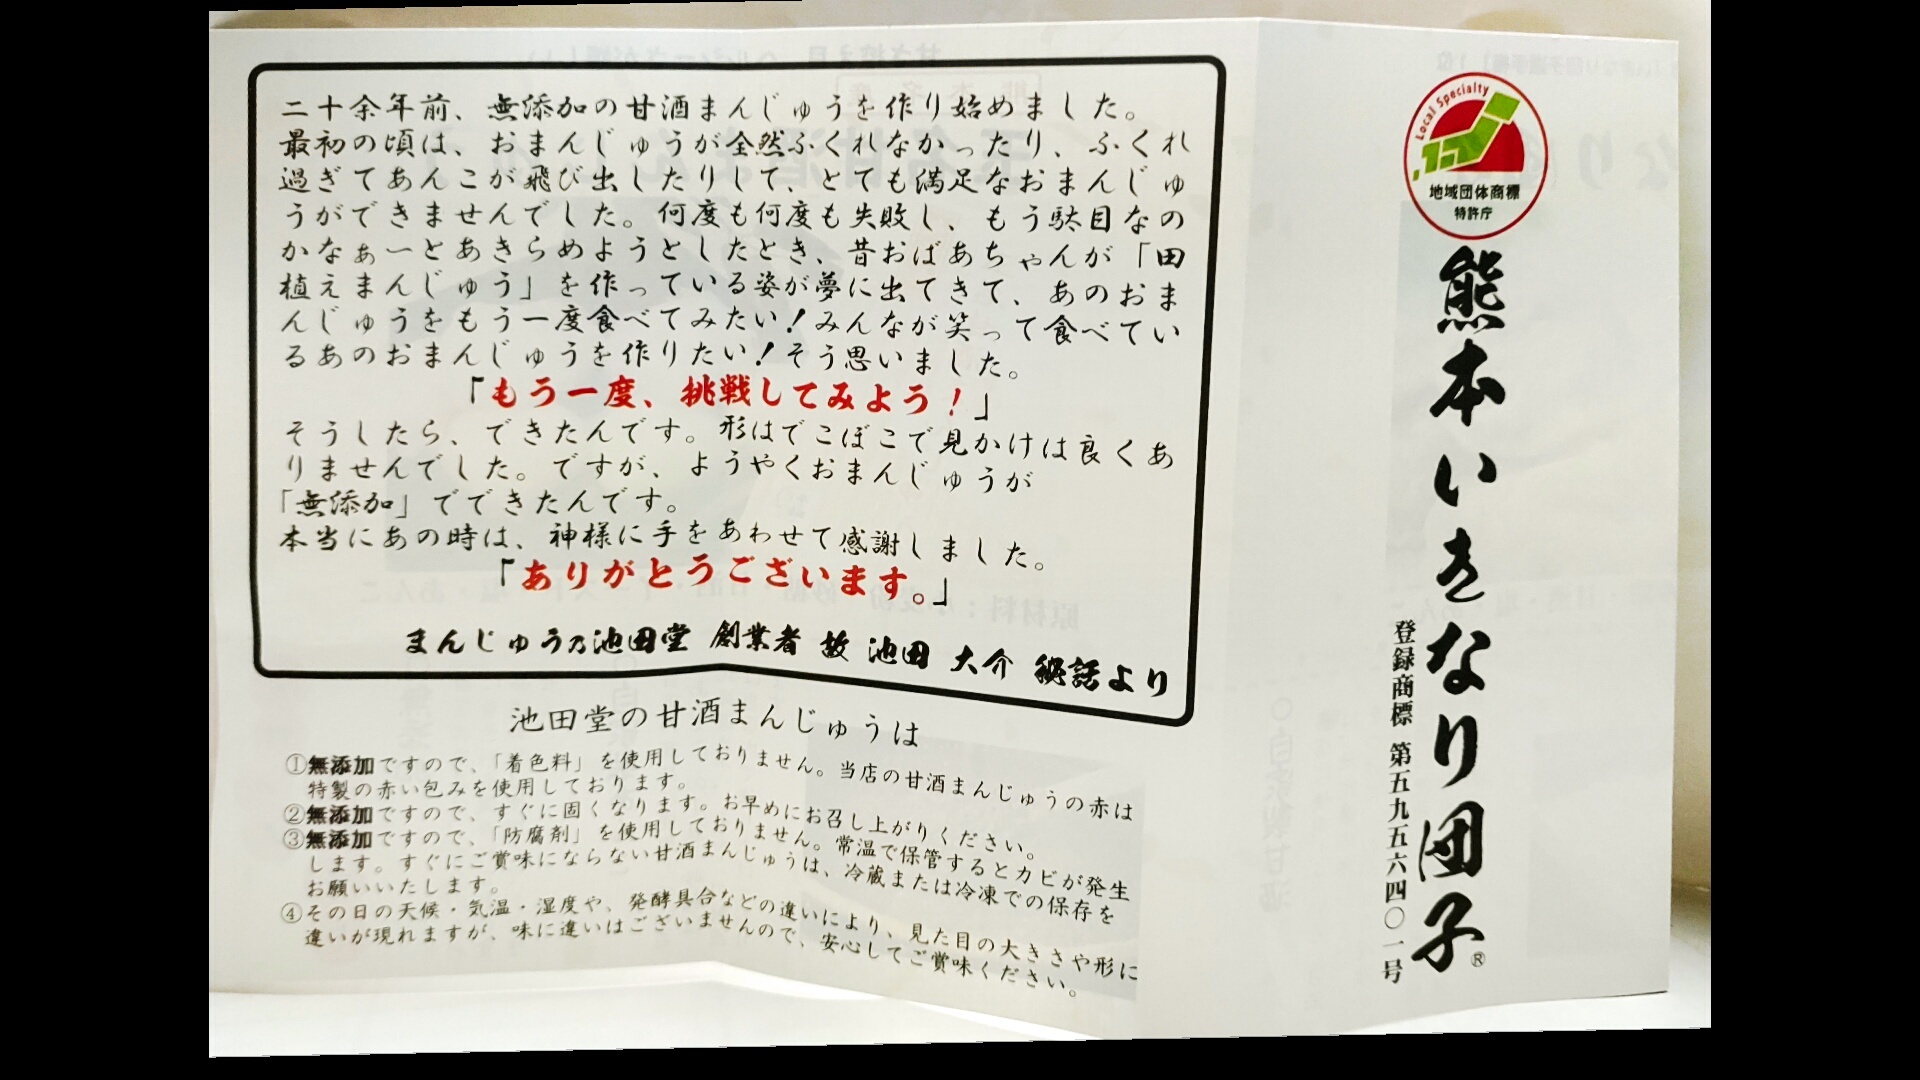 二十余年前、無添加の甘酒まんじゅうを作り始めました。
最初の頃は、おまんじゅうが全然ふくれなかったり、ふくれ
過ぎてあんこが飛び出したりして、とても満足なおまんじゅ
うができませんでした。何度も何度も失敗し、もう駄目なの
かなぁーとあきらめようとしたとき、昔おばあちゃんが「田
植えまんじゅう」を作っている姿が夢に出てきて、あのおま
んじゅうをもう一度食べてみたい！みんなが笑って食べてい
るあのおまんじゅうを作りたい！そう思いました。
「もう一度、挑戦してみよう！」
そうしたら、できたんです。形はでこぼこで見かけは良くあ
りませんでした。ですが、ようやくおまんじゅうが
「無添加」でできたんです。
本当にあの時は、神様に手をあわせて感謝しました。
「ありがとうございます。」
まんじゅう乃池田堂 創業者 故 池田 大介 秘話より
池田堂の甘酒まんじゅうは
①無添加ですので、「着色料」を使用しておりません。当店の甘酒まんじゅうの赤は
特製の赤い包みを使用しております。
②無添加ですので、すぐに固くなります。お早めにお召し上がりください。
③無添加ですので、「防腐剤」を使用しておりません。常温で保管するとカビが発生
します。すぐにご賞味にならない甘酒まんじゅうは、冷蔵または冷凍での保存を
お願いいたします。
④その日の天候・気温・湿度や、発酵具合などの違いにより、見た目の大きさや形に
違いが現れますが、味に違いはございませんので、安心してご賞味ください。
Local Specialty
地域団体商標
特許庁
熊本いきなり団子®
登録商標 第五九五六四〇一号